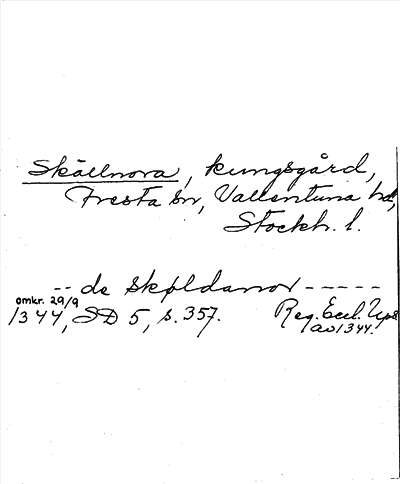 Skällnora, kungsgård,
Fresta sn, Vallentuna hd,
Stockh. l.
-- de skøldamor -----
omkr. 29/9
1344, SD 5, s. 357. Reg. Eccl. Ups
av 1344.